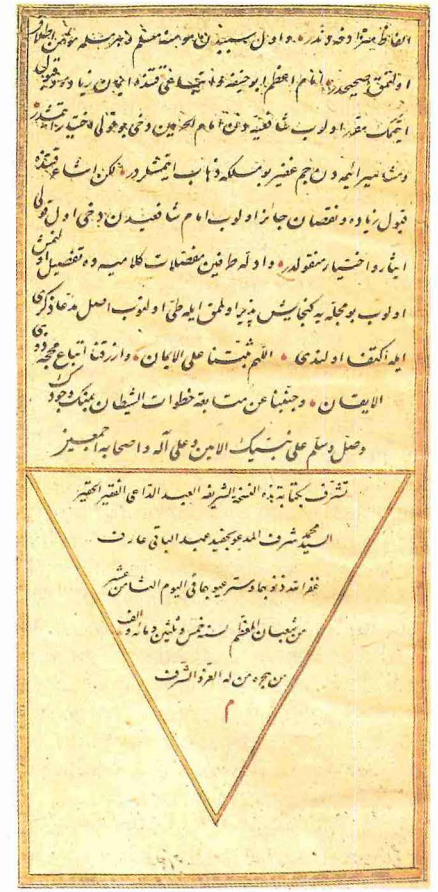 الفاظ مترادفه دندر و اول سببدن هر مؤمنه مسلم و هر مسلمه مؤمن اطلاق
اولنمق صحیحدر امام اعظم ابو حنیفه و اتباعی قتنده ایمان زیاده و نقصانی قبول
ایتمك مقدر اولوب شافعیه دن امام الحرمین دخی بو قولی اختیار ایتمشدر
و مشاهیر ائمه دن جم غفیر بو مسلكه ذهاب ایتمشلردر لكن اشاعره قتنده
قبول زیاده و نقصان جائز اولوب امام شافعیدن دخی اول قولی
ایثار و اختیار منقولدر و ادلهٔ طرفین مفصلات كلامیه ده تفصیل اولنمش
اولوب بو مجله یه گنجایش پذیر اولمامق ایله طی اولنوب اصل مدعا ذكری
ایله اكتفا اولندی اللهم ثبتنا علی الایمان وارزقنا اتباع محجة
الایقان وجنبنا عن متابعة خطوات الشیطان بمنك وجودك
وصل وسلم علی نبیك الامین وعلی آله واصحابه اجمعین
تشرف بكتابة هذه النسخة الشریفه العبد الداعی الفقیر الحقیر
السید محمد شرف المدعو بحفید عبد الباقی عارف
غفر الله ذنوبهما وستر عیوبهما فی الیوم الثامن عشر
من شعبان المعظم لسنه خمس وثلثین ومائه والف
من هجرة من له العز والشرف
م